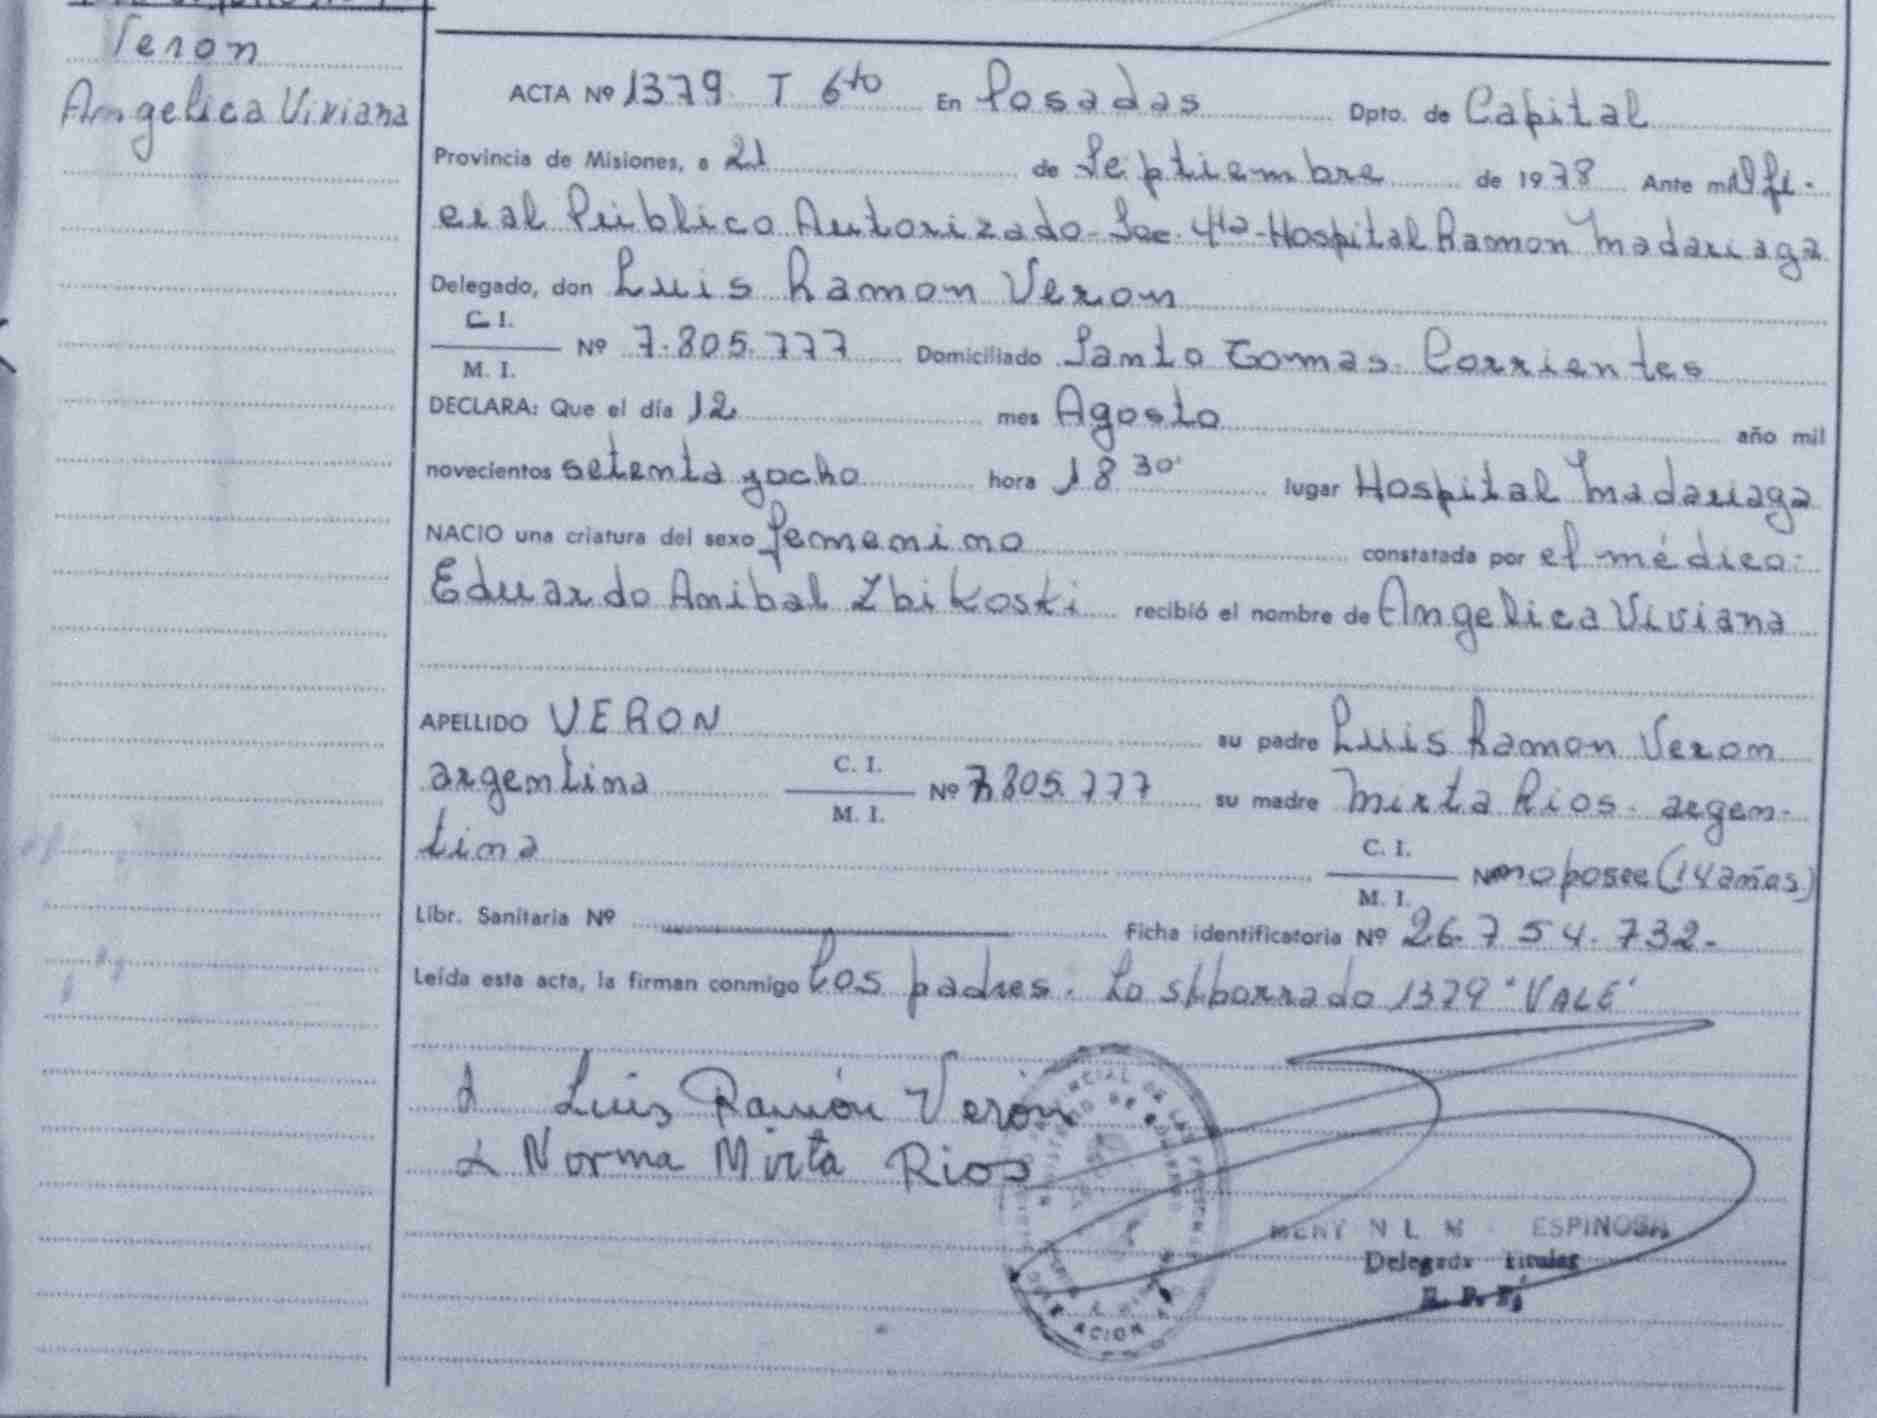 Veron
Angelica Viviana
ACTA Nº 1379 T 6to En Posadas Dpto. de Capital
Provincia de Misiones, a 21 de Septiembre de 1978 Ante mi Ofi-
cial Público Autorizado - Sec. 4ta - Hospital Ramon Madariaga
Delegado, don Luis Ramon Veron
C. I.
M. I.
Nº 7.805.777 Domiciliado Santo Tomas. Corrientes
DECLARA: Que el día 12 mes Agosto año mil
novecientos setenta yocho hora 18 30' lugar Hospital Madariaga
NACIO una criatura del sexo femenino constatada por el médico:
Eduardo Anibal Zbikoski recibió el nombre de Angelica Viviana
APELLIDO VERON su padre Luis Ramon Veron
argentina C. I. M. I. Nº 7.805.777 su madre Mirta Rios. argen-
tina C. I. M. I. Nº no posee (14 años)
Libr. Sanitaria Nº Ficha identificatoria Nº 26.754.732.-
Leída esta acta, la firman conmigo los padres. Lo s/borrado 1379 "VALE"
Luis Ramón Veron
Norma Mirta Rios
ESPINOSA
Delegada titular
R. P. P.